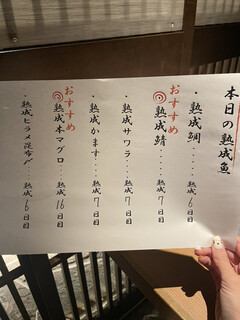 本日の熟成魚
・熟成鯛・・・・熟成6日目
おすすめ
熟成鯖・・・・熟成7日目
・熟成サワラ・・・熟成7日目
・熟成かます・・・熟成7日目
おすすめ
熟成本マグロ・・・熟成16日目
・熟成ヒラメ昆布〆・・・熟成6日目